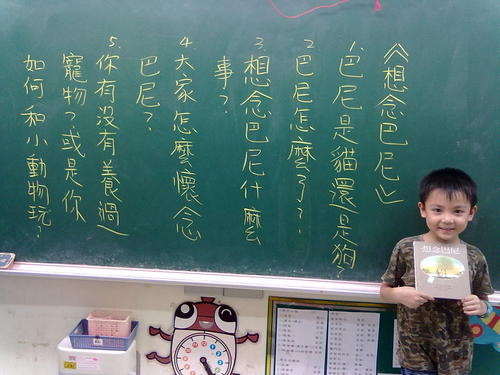 《想念巴尼》
1.巴尼是貓還是狗?
2.巴尼怎麼了?
3.想念巴尼什麼
事?
4.大家怎麼懷念
巴尼?
5.你有沒有養過
寵物?或是你
如何和小動物玩?
想念巴尼